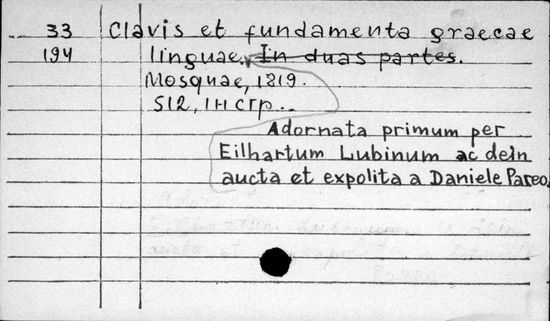 33 Clavis et fundamenta graecae
194 linguae. In duas partes.
Mosquae, 1819.
512, 1 н стр..
Adornata primum per
Eilhartum Lubinum ac dein
aucta et expolita a Daniele Pareo.